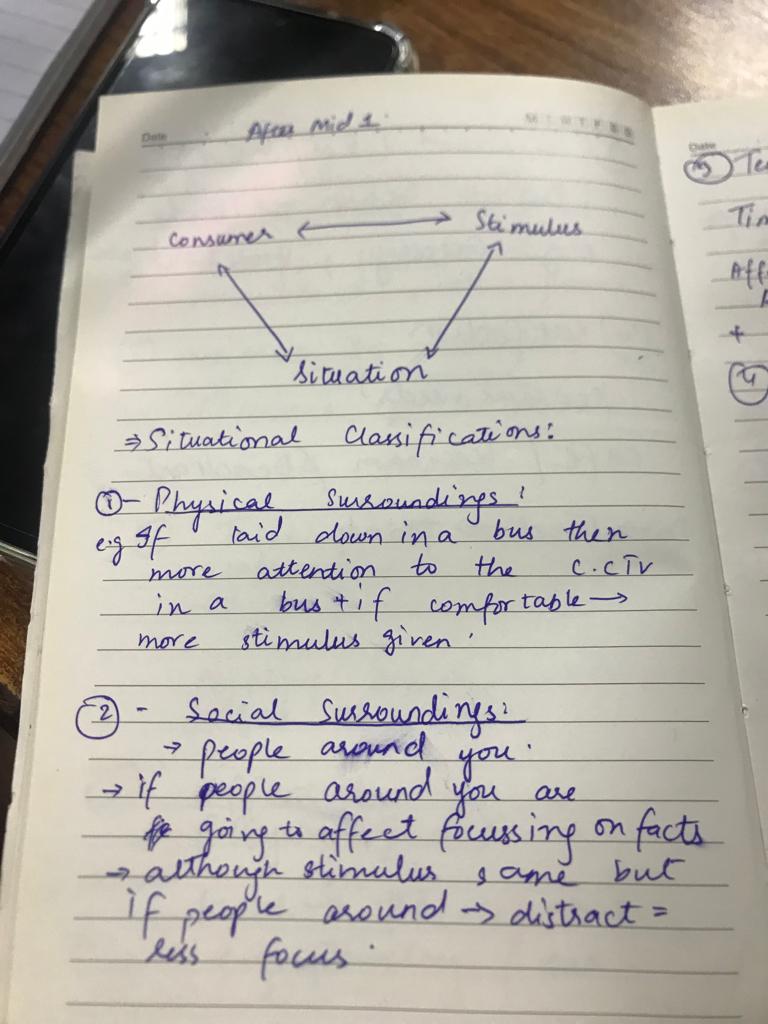 Date
After Mid 1
M T W T F S S
Consumer ⟷ Stimulus
Situation
⇒ Situational Classifications:
① - Physical Surroundings:
e.g If laid down in a bus then
more attention to the C.CTV
in a bus + if comfortable →
more stimulus given.
② - Social Surroundings:
→ people around you.
→ if people around you are
going to affect focussing on facts
→ although stimulus same but
if people around → distract =
less focus.
Date
③ Te
Tim
Aff
+
④